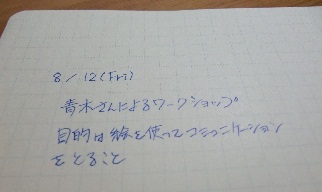 8/12(Fri)
青木さんによるワークショップ
目的は絵を使ってコミュニケーション
をとること